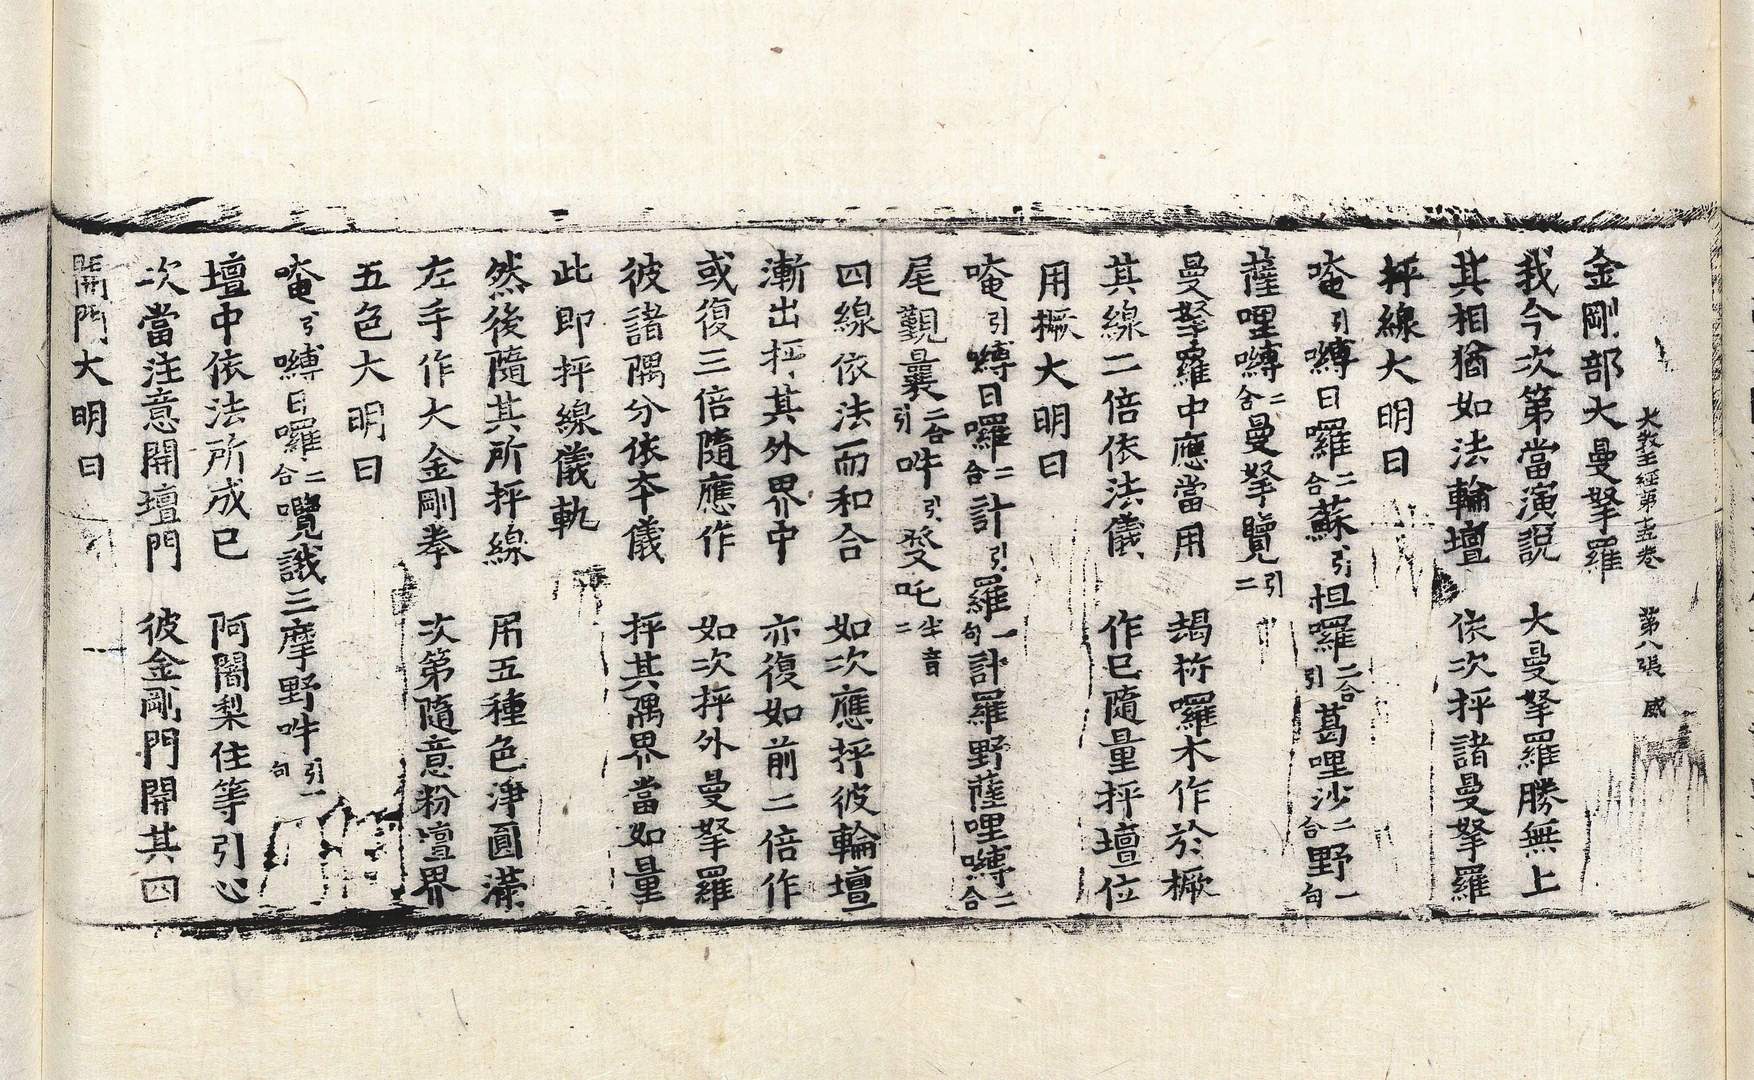 大教王經第十五卷 第八張 威
金剛部大曼拏羅
我今次第當演說 大曼拏羅勝無上
其相猶如法輪壇 依次抨諸曼拏羅
抨線大明曰
唵引嚩日囉二合蘇引怛囉二合引葛哩沙二合野一句
薩哩嚩二合曼拏覽引二
曼拏羅中應當用 朅祢囉木作於橛
其線二倍依法儀 作已隨量抨壇位
用橛大明曰
唵引嚩日囉二合計引羅一句計羅野薩哩嚩二合
尾覲曩二合引吽引發吒半音二
四線依法而和合 如次應抨彼輪壇
漸出抨其外界中 亦復如前二倍作
或復三倍隨應作 如次抨外曼拏羅
彼諸隅分依本儀 抨其隅界當如量
此即抨線儀軌
然後隨其所抨線 用五種色淨圓滿
左手作大金剛拳 次第隨意粉壇界
五色大明曰
唵引嚩日囉二合囕誐三摩野吽引一句
壇中依法所成已 阿闍梨住等引心
次當注意開壇門 彼金剛門開其四
開門大明曰